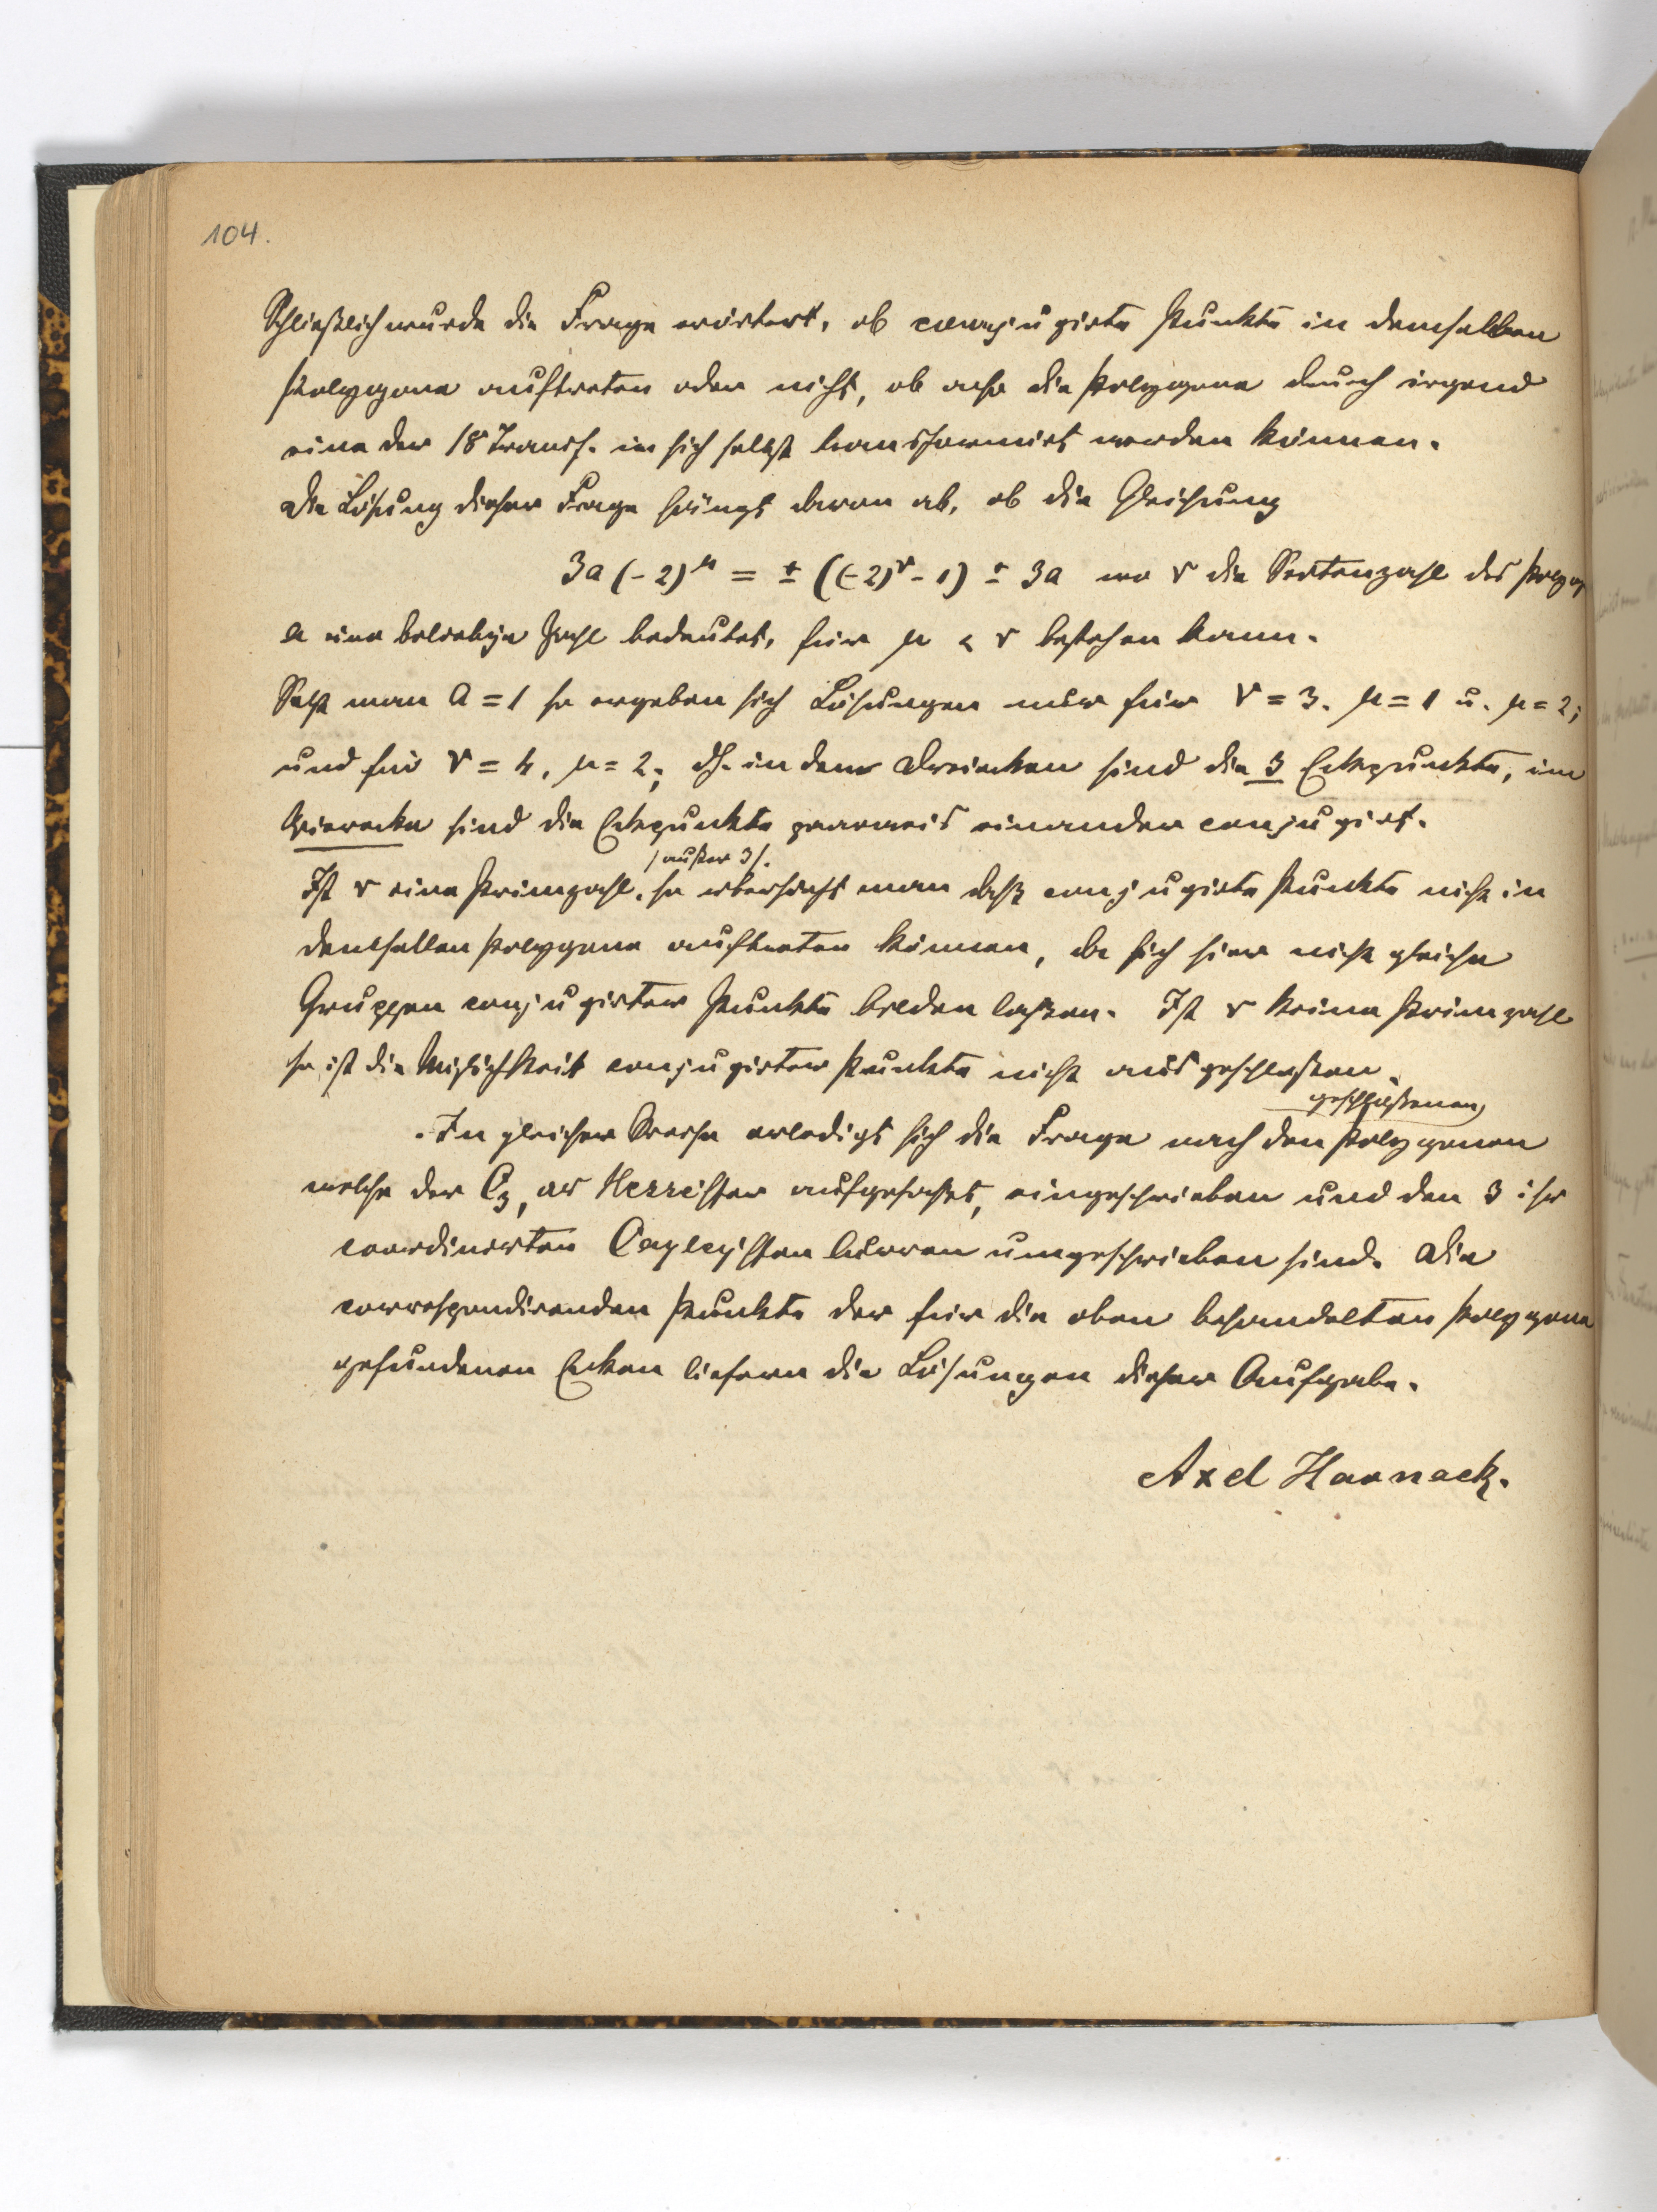 104.
Schließlich wurde die Frage erörtert, ob conjugirte Punkte in demselben
Polygone auftreten oder nicht, ob also die Polygone durch irgend
eine der 18 Transf. in sich selbst transformirt werden können.
Die Lösung dieser Frage hängt davon ab, ob die Gleichung
3a (-2)^μ = ± ((-2)^ν - 1) ± 3a wo ν die Seitenzahl des Polyg
a eine beliebige Zahl bedeutet, für μ < ν bestehen kann.
Setzt man a = 1 so ergeben sich Lösungen nur für ν = 3. μ = 1 u. μ = 2;
und für ν = 4, μ = 2; dh. in den Dreiecken sind die 3 Eckpunkte, im
Vierecke sind die Eckpunkte paarweis einander conjugirt.
(außer 3).
Ist ν eine Primzahl, so übersieht man daß conjugirte Punkte nicht in
demselben Polygone auftreten können, da sich hier nicht gleiche
Gruppen conjugirter Punkte bilden laßen. Ist ν keine Primzahl
so ist die Möglichkeit conjugirter Punkte nicht ausgeschloßen.
geschloßenen
In gleicher Weise erledigt sich die Frage nach den Polygonen
welche der C₃, als Hesse'schen aufgefaßt, eingeschrieben und den 3 ihr
coordinirten Cayley'schen Curven umgeschrieben sind. Die
correspondirenden Punkte der für die oben behandelten Polygone
gefundenen Ecken liefern die Lösungen dieser Aufgabe.
Axel Harnack.